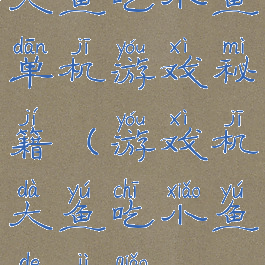 大鱼吃小鱼
dān jī yóu xì mì
单机游戏秘
jí yóu xì jī
籍(游戏机
dà yú chī xiǎo yú
大鱼吃小鱼
de jì qiǎo